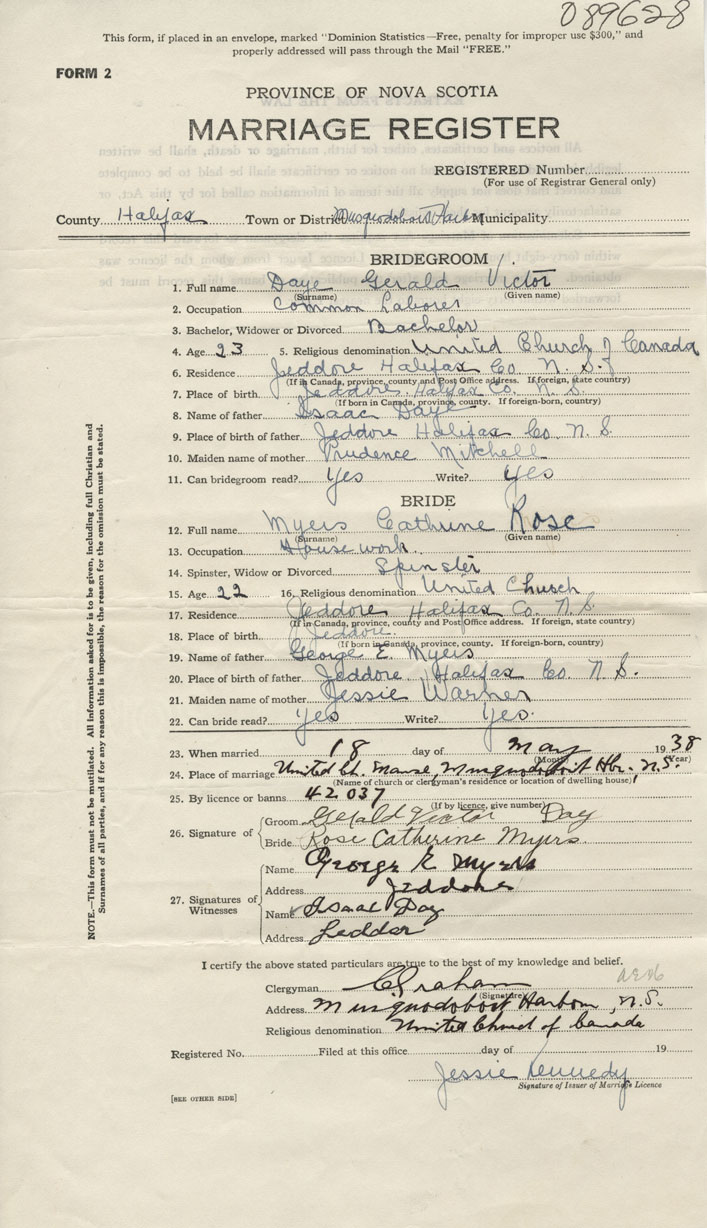 089628
This form, if placed in an envelope, marked "Dominion Statistics—Free, penalty for improper use $300," and
properly addressed will pass through the Mail "FREE."
FORM 2
PROVINCE OF NOVA SCOTIA
MARRIAGE REGISTER
REGISTERED Number
(For use of Registrar General only)
County Halifax Town or District Musquodoboit Harbour Municipality
BRIDEGROOM
1. Full name Daye Gerald Victor
(Surname) (Given name)
2. Occupation Common Laborer
3. Bachelor, Widower or Divorced Bachelor
4. Age 23 5. Religious denomination United Church of Canada
6. Residence Jeddore Halifax Co. N. S.
(If in Canada, province, county and Post Office address. If foreign, state country)
7. Place of birth Jeddore Halifax Co. N. S.
(If born in Canada, province, county. If foreign-born, country)
8. Name of father Isaac Daye
9. Place of birth of father Jeddore Halifax Co. N. S.
10. Maiden name of mother Prudence Mitchell
11. Can bridegroom read? Yes Write? Yes
BRIDE
12. Full name Myers Cathrine Rose
(Surname) (Given name)
13. Occupation Housework
14. Spinster, Widow or Divorced Spinster
15. Age 22 16. Religious denomination United Church
17. Residence Jeddore Halifax Co. N. S.
(If in Canada, province, county and Post Office address. If foreign, state country)
18. Place of birth Jeddore
(If born in Canada, province, county. If foreign-born, country)
19. Name of father George E. Myers
20. Place of birth of father Jeddore Halifax Co. N. S.
21. Maiden name of mother Jessie Warner
22. Can bride read? Yes Write? Yes.
23. When married 18 day of May 1938
(Month) (Year)
24. Place of marriage United Ch. Manse, Musquodoboit Hbr. N.S.
(Name of church or clergyman's residence or location of dwelling house)
25. By licence or banns 42037
(If by licence, give number)
26. Signature of
Groom Gerald Victor Day
Bride Rose Catherine Myers
27. Signatures of Witnesses
Name George E Myers
Address Jeddore
Name Isaac Day
Address Jeddor
I certify the above stated particulars are true to the best of my knowledge and belief.
Clergyman C Graham
(Signature)
Address Musquodoboit Harbour, N.S.
Religious denomination United Church of Canada
Registered No. Filed at this office day of 19
Jessie Kennedy
Signature of Issuer of Marriage Licence
[SEE OTHER SIDE]
NOTE.—This form must not be mutilated. All information asked for is to be given, including full Christian and
Surnames of all parties, and if for any reason this is impossible, the reason for the omission must be stated.